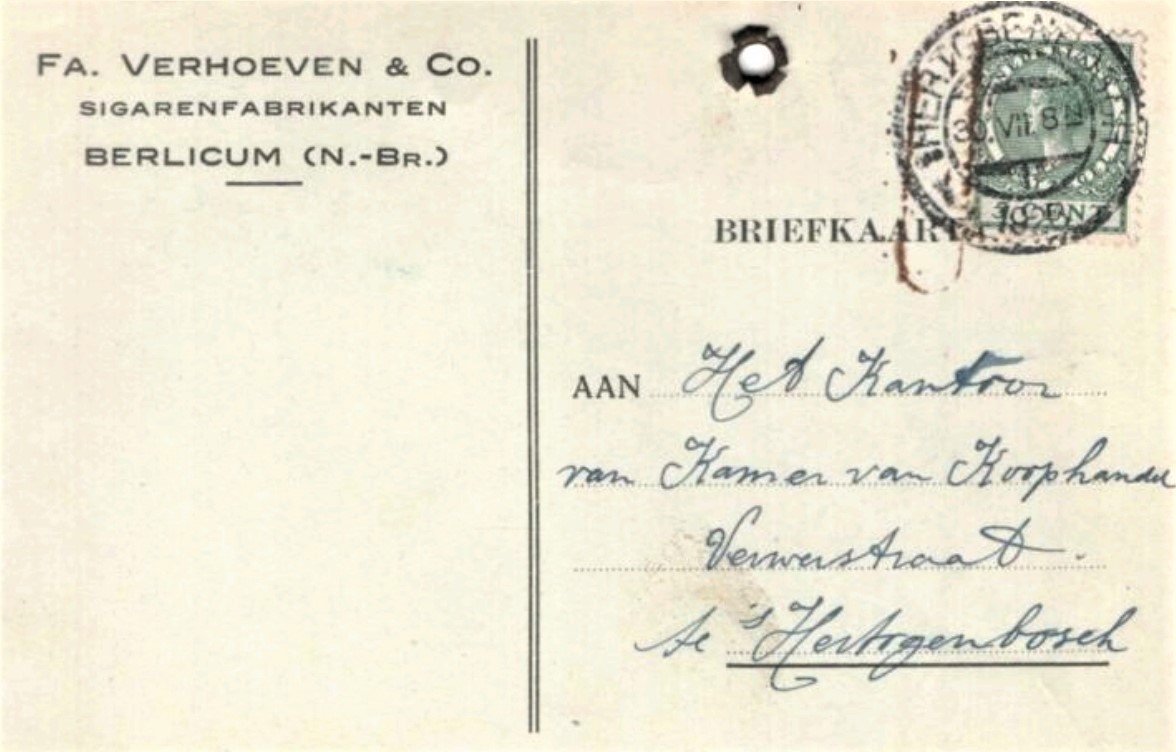 Fa. Verhoeven & Co.
SIGARENFABRIKANTEN
BERLICUM (N.-Br.)
'S HERTOGENBOSCH
30 VII 8
1
19
3 CENT
BRIEFKAART
AAN Het Kantoor
van Kamer van Koophandel
Verwerstraat.
te 's Hertogenbosch